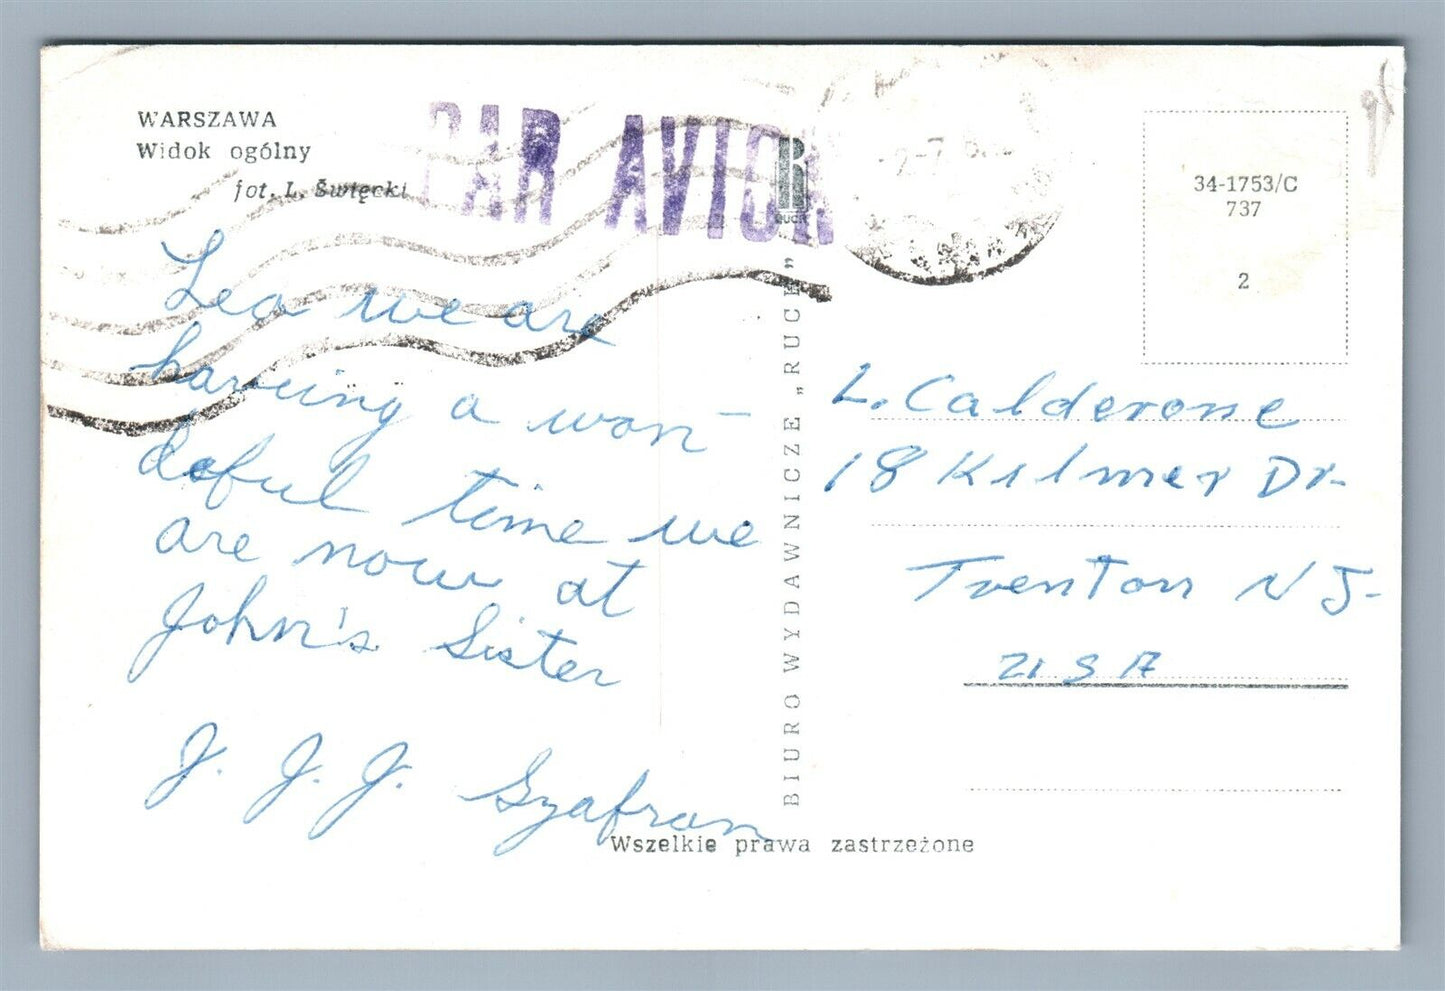 WARSZAWA
Widok ogólny
fot. L. Święcki
PAR AVION
R
RUCH
34-1753/C
737
2
Lea we are
having a won-
doful time we
are now at
John's Sister
J. J. J. Szafran
BIURO WYDAWNICZE „RUCH"
L. Calderone
18 Kilmer Dr.
Trenton N J.
USA
Wszelkie prawa zastrzeżone